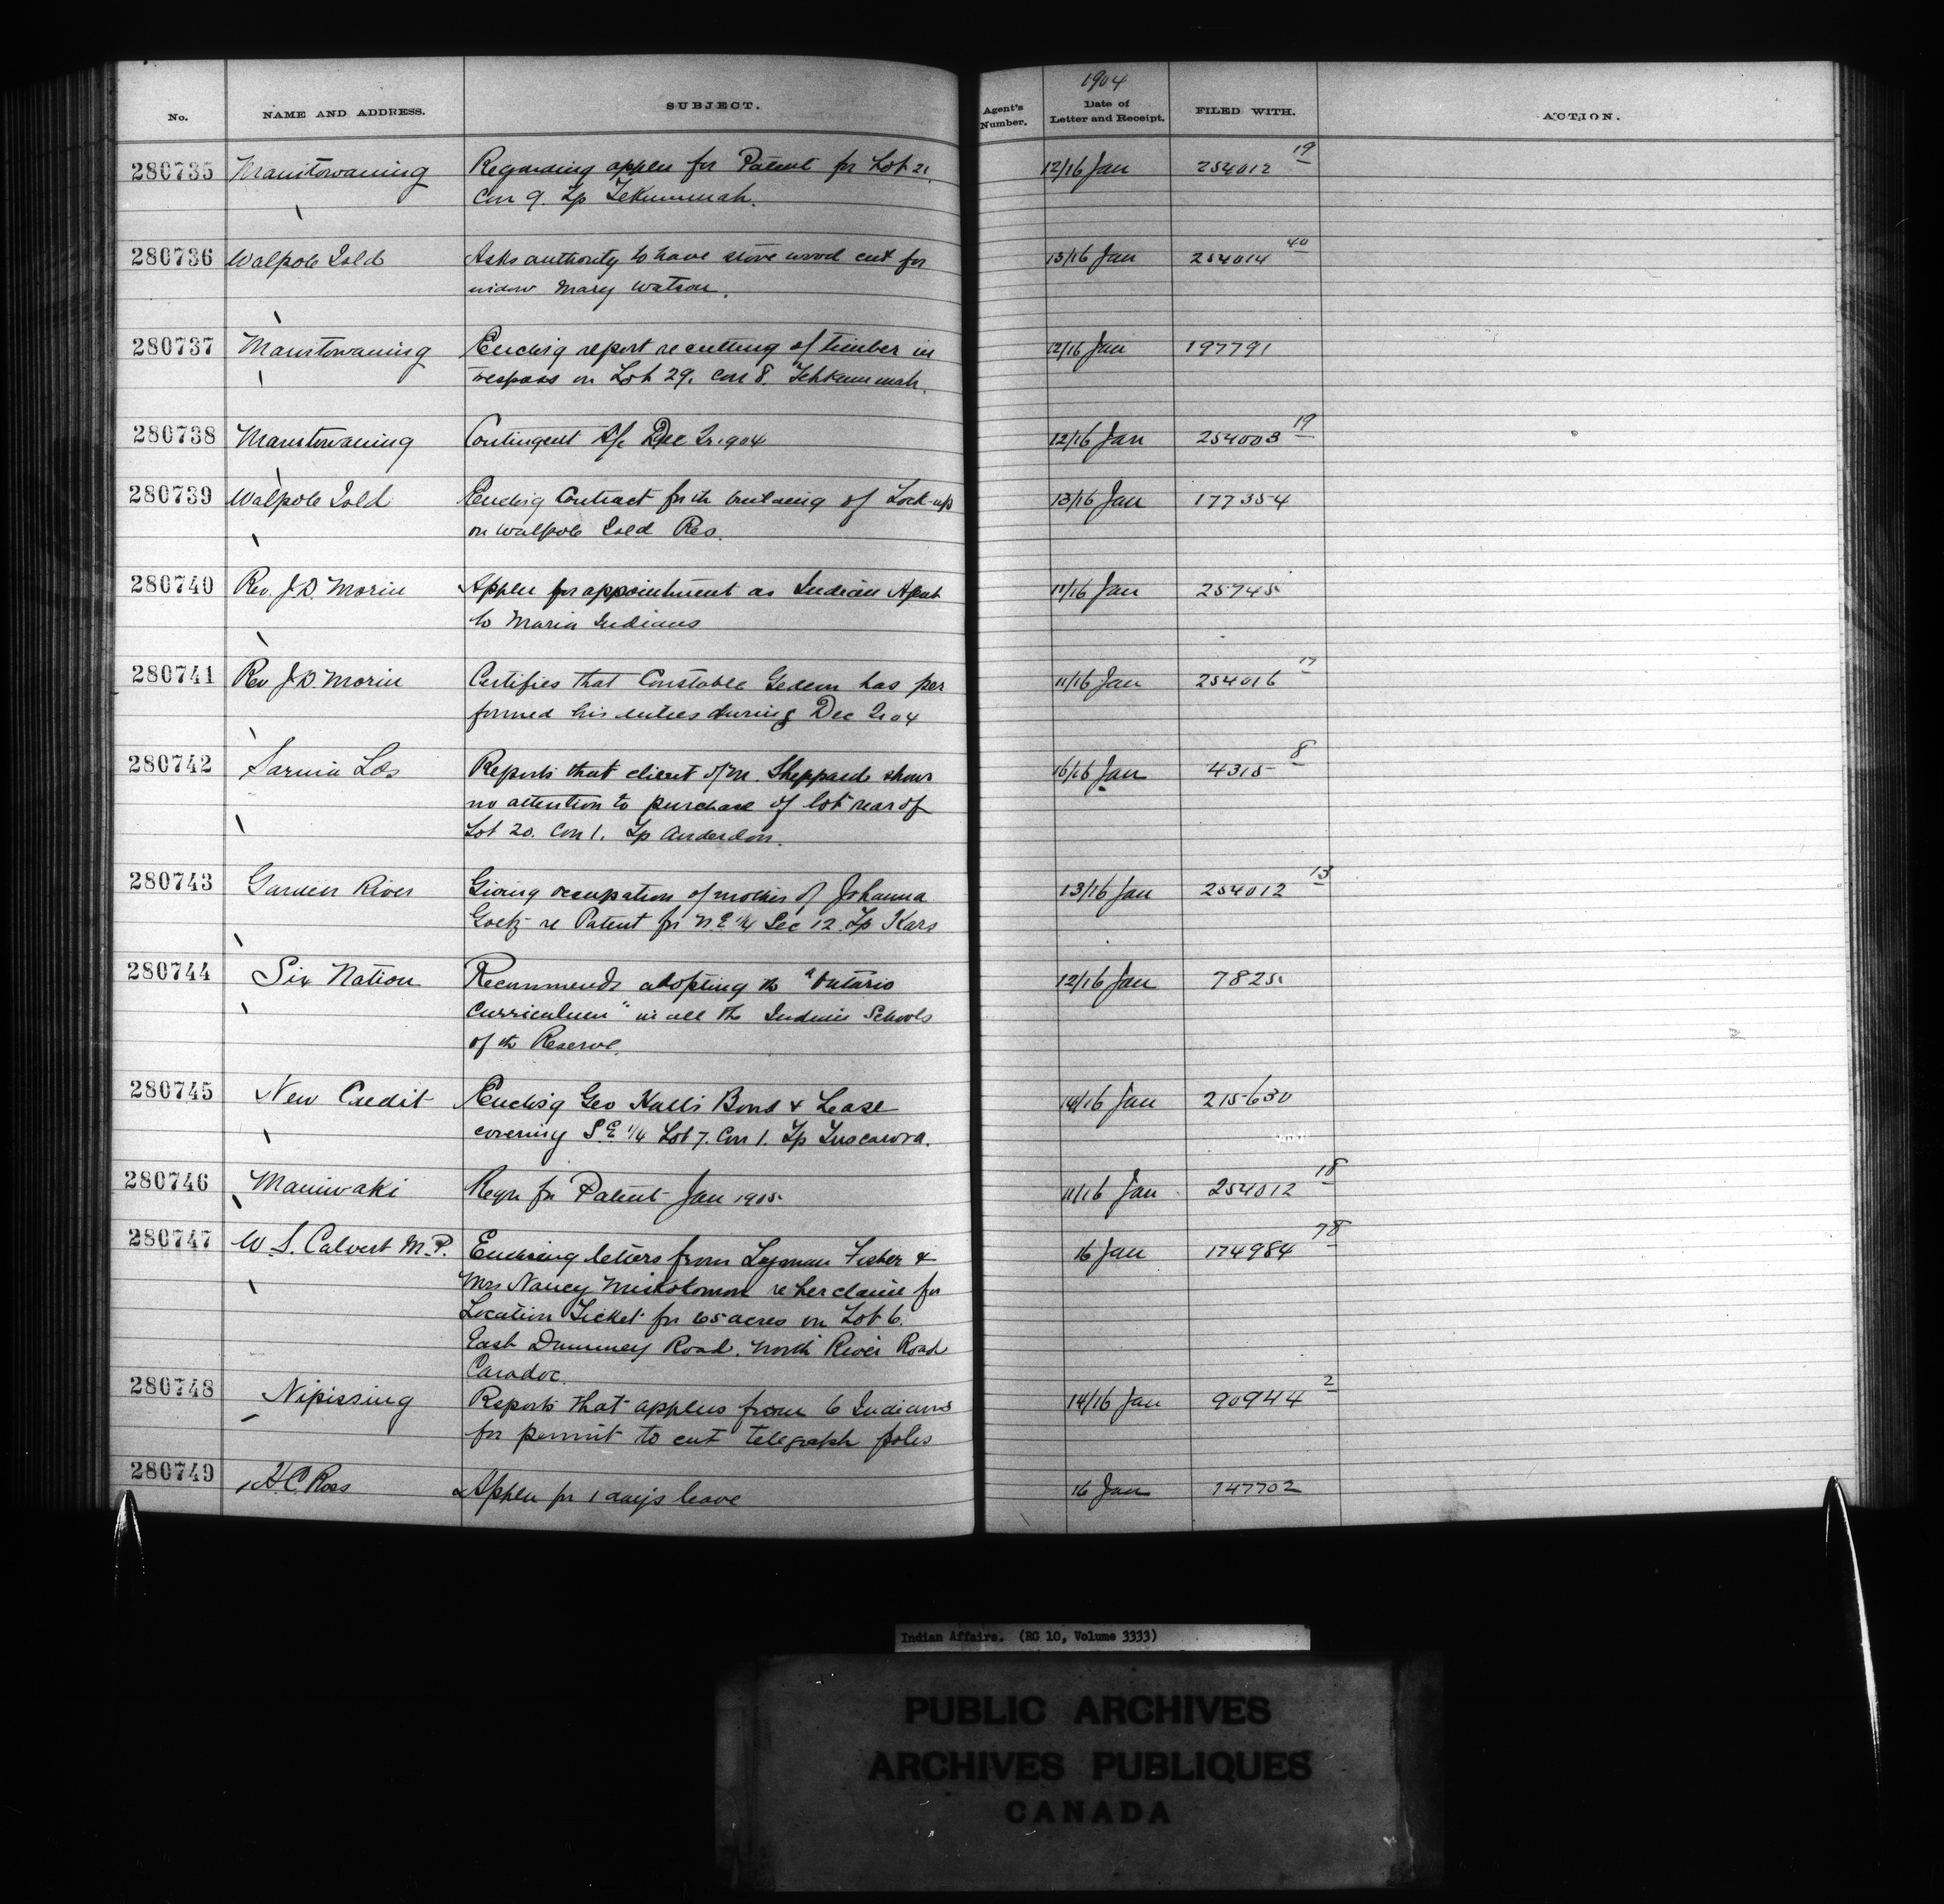 No. NAME AND ADDRESS. SUBJECT. Agent's Number. 1904 Date of Letter and Receipt. FILED WITH. ACTION.
280735 Manitowaning Regarding applcn for Patent for Lot 21. 12/16 Jan 254012 19
Con 9. Tp Tekummah.
280736 Walpole Isld Asks authority to have stove wood cut for 13/16 Jan 254014 40
widow Mary Watson.
280737 Manitowaning Enclosg report re cutting of timber in 12/16 Jan 197791
trespass on Lot 29. Con 8. Tehkummah.
280738 Manitowaning Contingent A/c Dec Qr. 1904 12/16 Jan 254003 19
280739 Walpole Isld Enclosg Contract for th building of Lock-up 13/16 Jan 177354
on Walpole Isld Res.
280740 Rev. J.D. Morin Applcn for appointment as Indian Agent 11/16 Jan 25745
to Maria Indians
280741 Rev J.D. Morin Certifies that Constable Gedeon has per 11/16 Jan 254016 17
formed his duties during Dec Qr 04
280742 Sarnia Lds Reports that client of Mr. Sheppard shows 16/16 Jan 4315 8
no attention to purchase of lot rear of
Lot 20. Con 1. Tp Anderdon.
280743 Garden River Giving occupation of mother of Johanna 13/16 Jan 254012 13
Goetz re Patent for N.E 1/4 Sec 12. Tp Kars
280744 Six Nation Recommends adopting th "Ontario 12/16 Jan 7825
Curriculum" in all the Indian Schools
of th Reserve.
280745 New Credit Enclosg Geo Hall's Bond & Lease 14/16 Jan 215630
covering S.E 1/4 Lot 7. Con 1. Tp Tuscarora.
280746 Maniwaki Reqn for Patent Jan 1905 11/16 Jan 254012 18
280747 W. S. Calvert M.P. Enclosing letters from Lyman Fisher & 16 Jan 174984 78
Mrs Nancy re her claim for
Location Ticket for 65 acres on Lot 6.
East Road. North River Road
Caradoc.
280748 Nipissing Reports that applcns from 6 Indians 14/16 Jan 90944 2
for permit to cut telegraph poles
280749 H.C. Ross Applcn for 1 day's leave 16 Jan 147702
Indian Affairs. (RG 10, Volume 3333)
PUBLIC ARCHIVES
ARCHIVES PUBLIQUES
CANADA